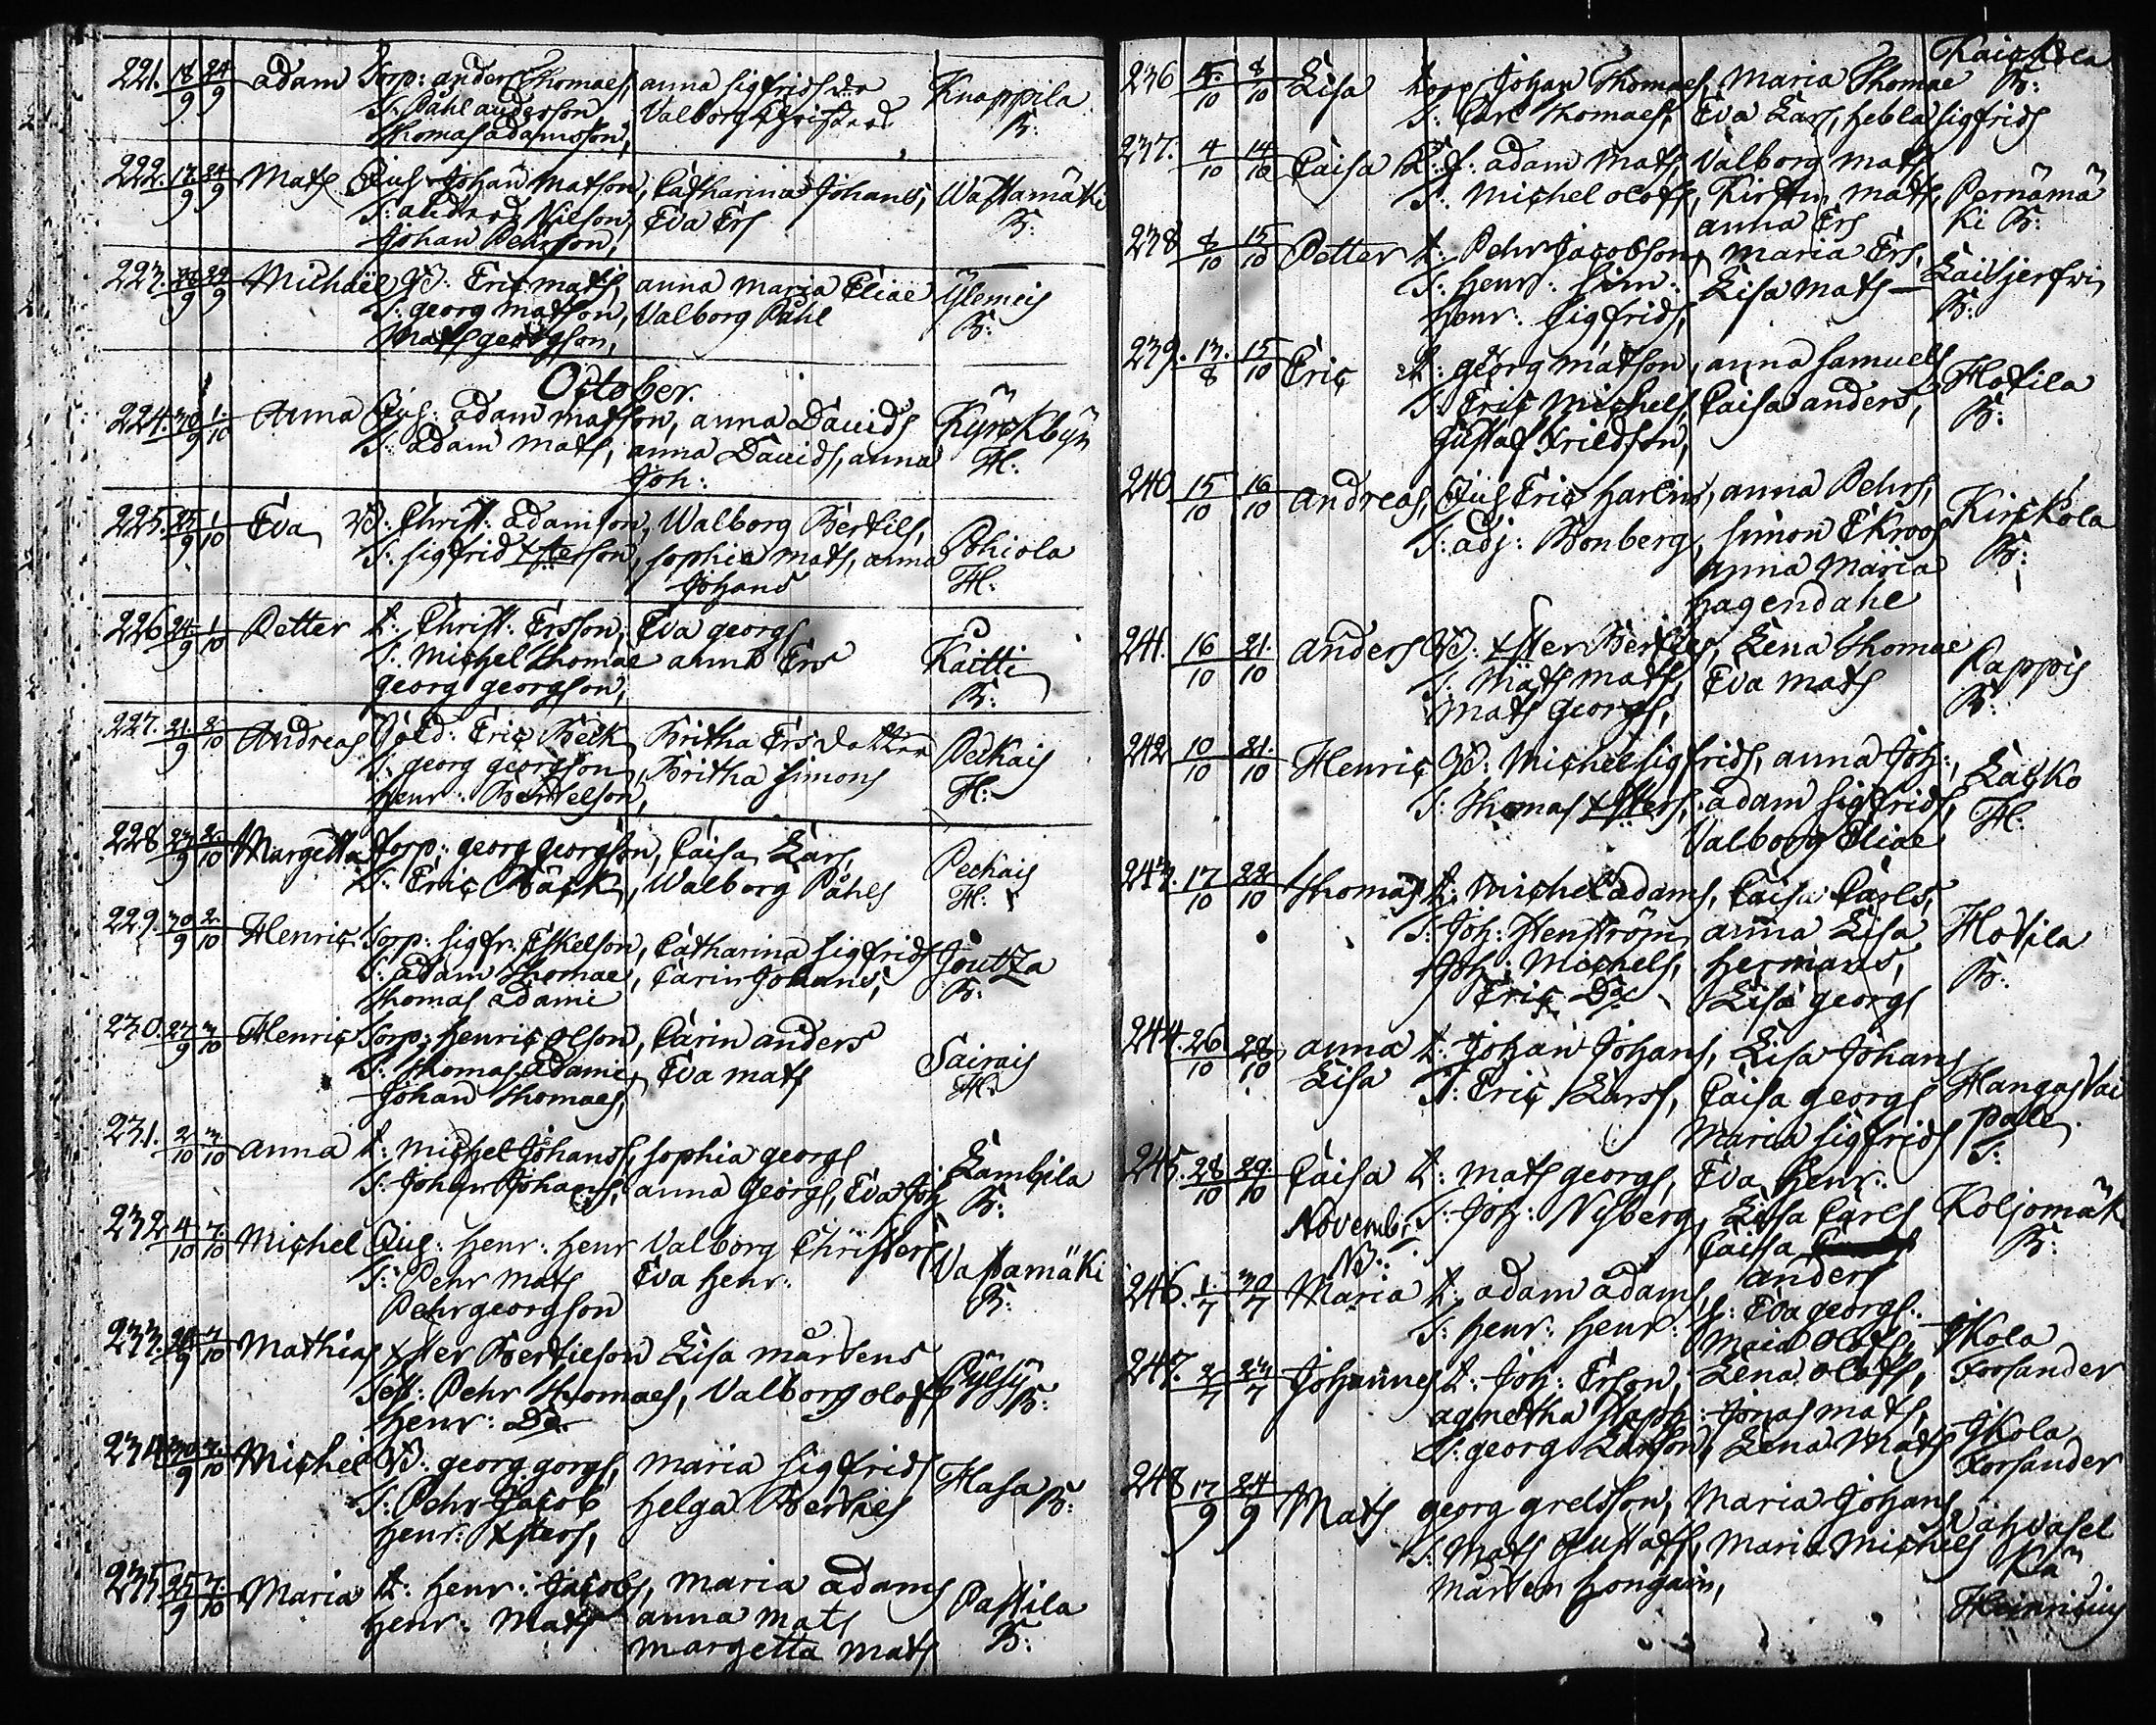 221. 18/9 24/9 Adam Torp: Anders Thomaes, anna sigfrids der Knappila
S: Påhl andersson, Valborg Christers B:
Thomas adamsson,
222. 17/9 24/9 Mats Inh Johan Matson, Catharina Johans,
S: anders Nilson, Eva Ers B:
Johan Pehrson,
223. 29/9 Michael B: Eric mats, anna maria Eliae Ylemeis
S: georg matson, Valborg Påhl B:
Mats georgson,
October.
224. 30/9 1/10 Anna Inh: adam matsson, anna Davids Kyrckbyn
S: adam mats, anna Davids, anna H:
Joh:
225. 25/9 1/10 Eva B: Christ: adamson, Walborg Bertils, Pohiola
S: sigfrid xsterson, sophia mats, anna H:
Johans
226 24/9 1/10 Petter t: Christ: Ersson, Eva georgs
S: Michel Thomae anna Ers Kaitti
georg georgson, B:
227. 21/9 2/10 Andreas Sold: Eric Beck Britha Ersdotter Peckais
S: georg georgson, Britha simons H:
Henr: Bertelson,
228 27/9 2/10 Margetta Torp: georg georgson, Caisa Lars, Peckais
S: Eric Bäck, Walborg Påhls H:
229. 30/9 2/10 Henric Torp: sigfr: Eskelson, Catharina sigfrids Joutza
S: adam Thomae, Carin Johans, B:
Thomas adami
230. 27/9 3/10 Henric Torp: Henric Olson, Carin anders Sairais
S: Thomas adami, Eva mats H:
Johan Thomaes,
231. 2/10 3/10 anna t: michel Johans, sophia georgs Lambila
S: Johan Johans, anna georgs, Eva Joh B:
232 4/10 7/10 Michel Inh: Henr: Henr Valborg Christers Vastamäki
S: Pehr mats Eva Henr: B:
Pehr georgson
233. 7/10 Mathias xster Bertilson Lisa mårtens
Test: Pehr Thomaes, Valborg olofs B:
Henr: Do
234 30/9 7/10 Michel B: georg gorgs, maria sigfrids Hasa B:
S: Pehr Jacob Helga Bertils
Henr: xsters,
235 25/9 7/10 Maria t: Henr: Jacobs, maria adams Pastila
Henr: Mats anna mats B:
Margetta mats
236 5/10 8/10 Lisa torp Johan Thomaes, Maria Thomae Kaickola B:
S: Carl Thomaes, Eva Lars, Hebla sigfrids
237. 4/10 14/10 Caisa adam Mats, Valborg mats
S: Michel olofs, Kirstin mats, Pernämä
anna Ers ki B:
238 8/10 15/10 Petter t: Pehr Jacobson, maria Ers,
S: Henr: sim: Lisa mats
Henr: sigfrids, B:
239. 13/8 15/10 Eric t: georg matson, anna samuels Hotila
S: Eric Michels, Caisa anders, B:
gustaf
240 15/10 16/10 andreas, Inh Eric Harlin, anna Pehrs, Kirckola
S: adj: Bonberg, simon Ekroos B:
anna Maria
Hagendahl
241. 16/10 21/10 anders B: xster Bertils, Lena Thomae Pappis
S: Mats mats, Eva mats B:
Mats georgs,
242 10/10 21/10 Henric B: Michel sigfrids, anna Joh:, Lacko
S: Thomas xsters, adam sigfrids, H:
Valborg Eliae
243. 17/10 22/10 Thomas t: Michel adams, Caisa Carls,
S: Joh: Stenström anna Lisa Hotila
Joh: Michels, Hermans, B:
Eric Do Lisa georgs
244. 26/10 28/10 anna t: Johan Johans, Lisa Johans
Lisa S: Eric Larss, Caisa georgs Hangas Vai
Maria sigfrids pale S:
245. 28/10 29/10 Caisa t: mats georgs, Eva Henr:
Novembr S: Joh: Nyberg, Lisa Carls Koljomäk
Caisa anders B:
NB:
246. 1/7 30/7 Maria t: adam adams,
S: Henr: Henr: h: Eva georgs
Maria Olofs, Jkola
247. 2/7 23/7 Johannes t: Joh: Erson, Lena Olofs, Forsander
agnetha Jonas mats,
S: georg Larsson, Lena Mats Jkola
Forsander
248 17/9 24/9 Mats georg grelsson, Maria Johans
S: Mats gustafs, Maria Michels
Mårten Hongain,